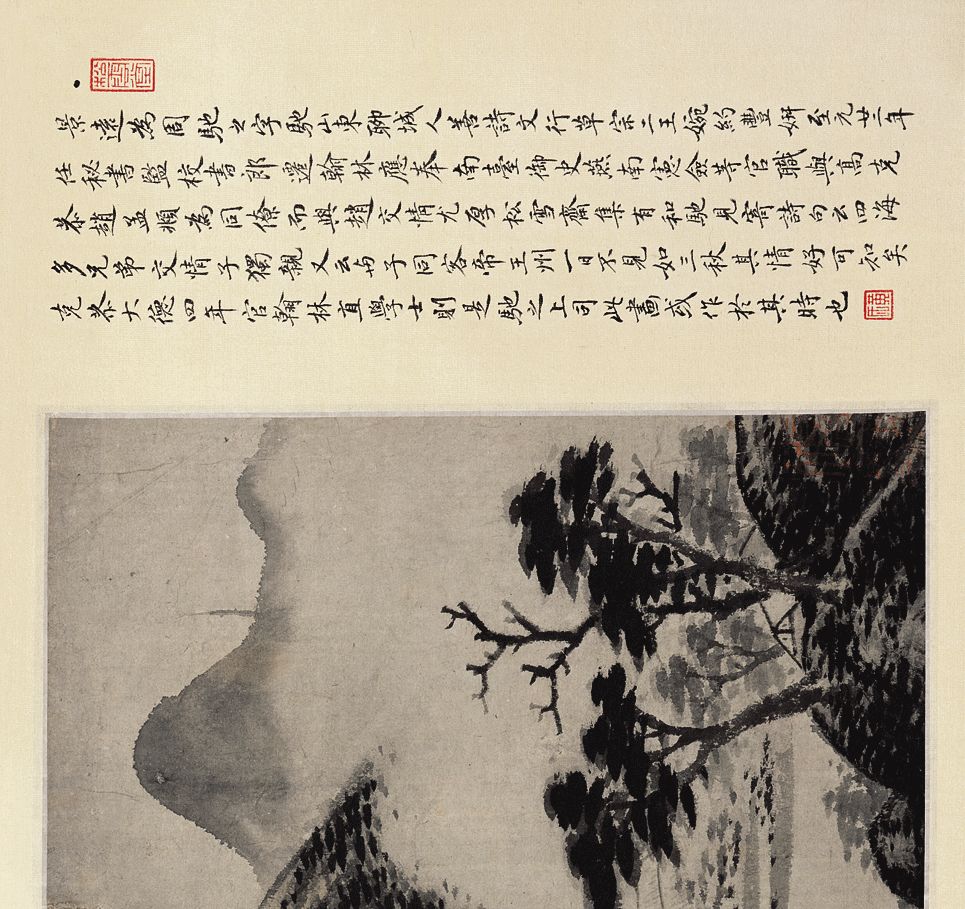 景遠為周馳之字馳山東聊城人善詩文行草宗二王婉約豐妍至元廿二年
任秘書監校書郎遷翰林應奉南臺御史燕南憲僉等官職與高克
恭趙孟頫為同僚而與趙交情尤厚松雪齋集有和馳見寄詩句云四海
多兄弟交情子獨親又云与子同客帝王州一日不見如三秋其情好可知矣
克恭大德四年官翰林直學士則是馳之上司此畫或作於其時也